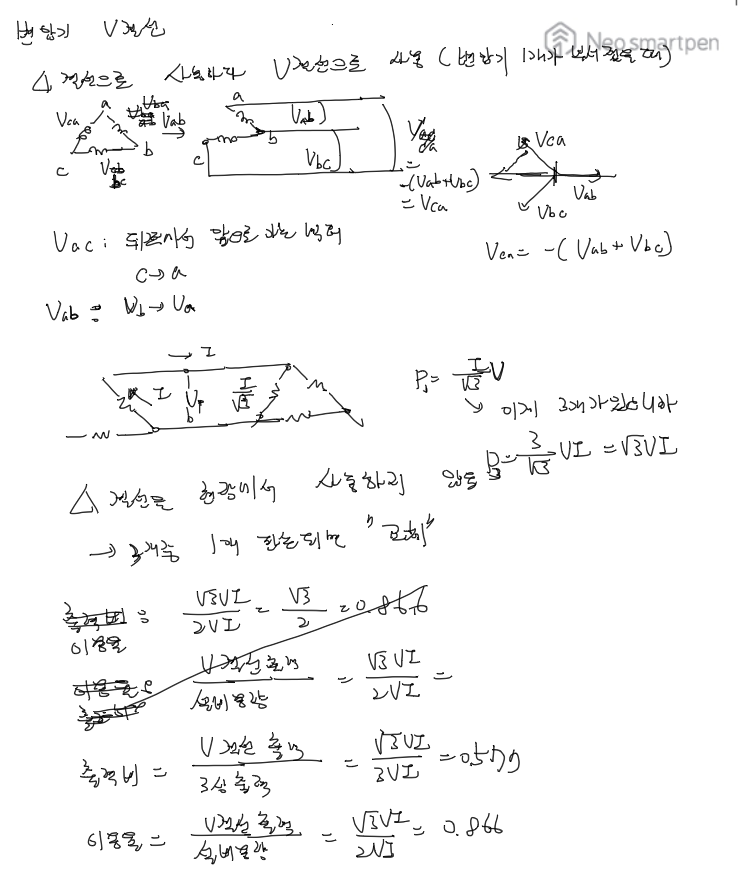 변압기 V결선
Neo smartpen
△ 결선으로 사용하다 V결선으로 사용 (변압기 1개가 부서졌을 때)
a Vba Vab a
Vca Vab Vca
c Vbc b c b Vbc = -(Vab+Vbc) Vab
= Vca Vbc
Vac : 뒤로에서 앞으로 가는 벡터 Vca = -(Vab + Vbc)
c→a
Vab = Vb → Va
→ I
I V I/√3 P₁ = I/√3 V
↘ 이게 3개가 있으니까
P₃ = 3/√3 VI = √3VI
△ 결선을 현장에서 사용하지 않음
→ 3개중 1개 "고장"
이용률 : √3VI/2VI = √3/2 = 0.866
V결선 출력/설비용량 = √3VI/2VI =
출력비 = V결선 출력/3상 출력 = √3VI/3VI = 0.577
이용률 = V결선 출력/설비용량 = √3VI/2VI = 0.866